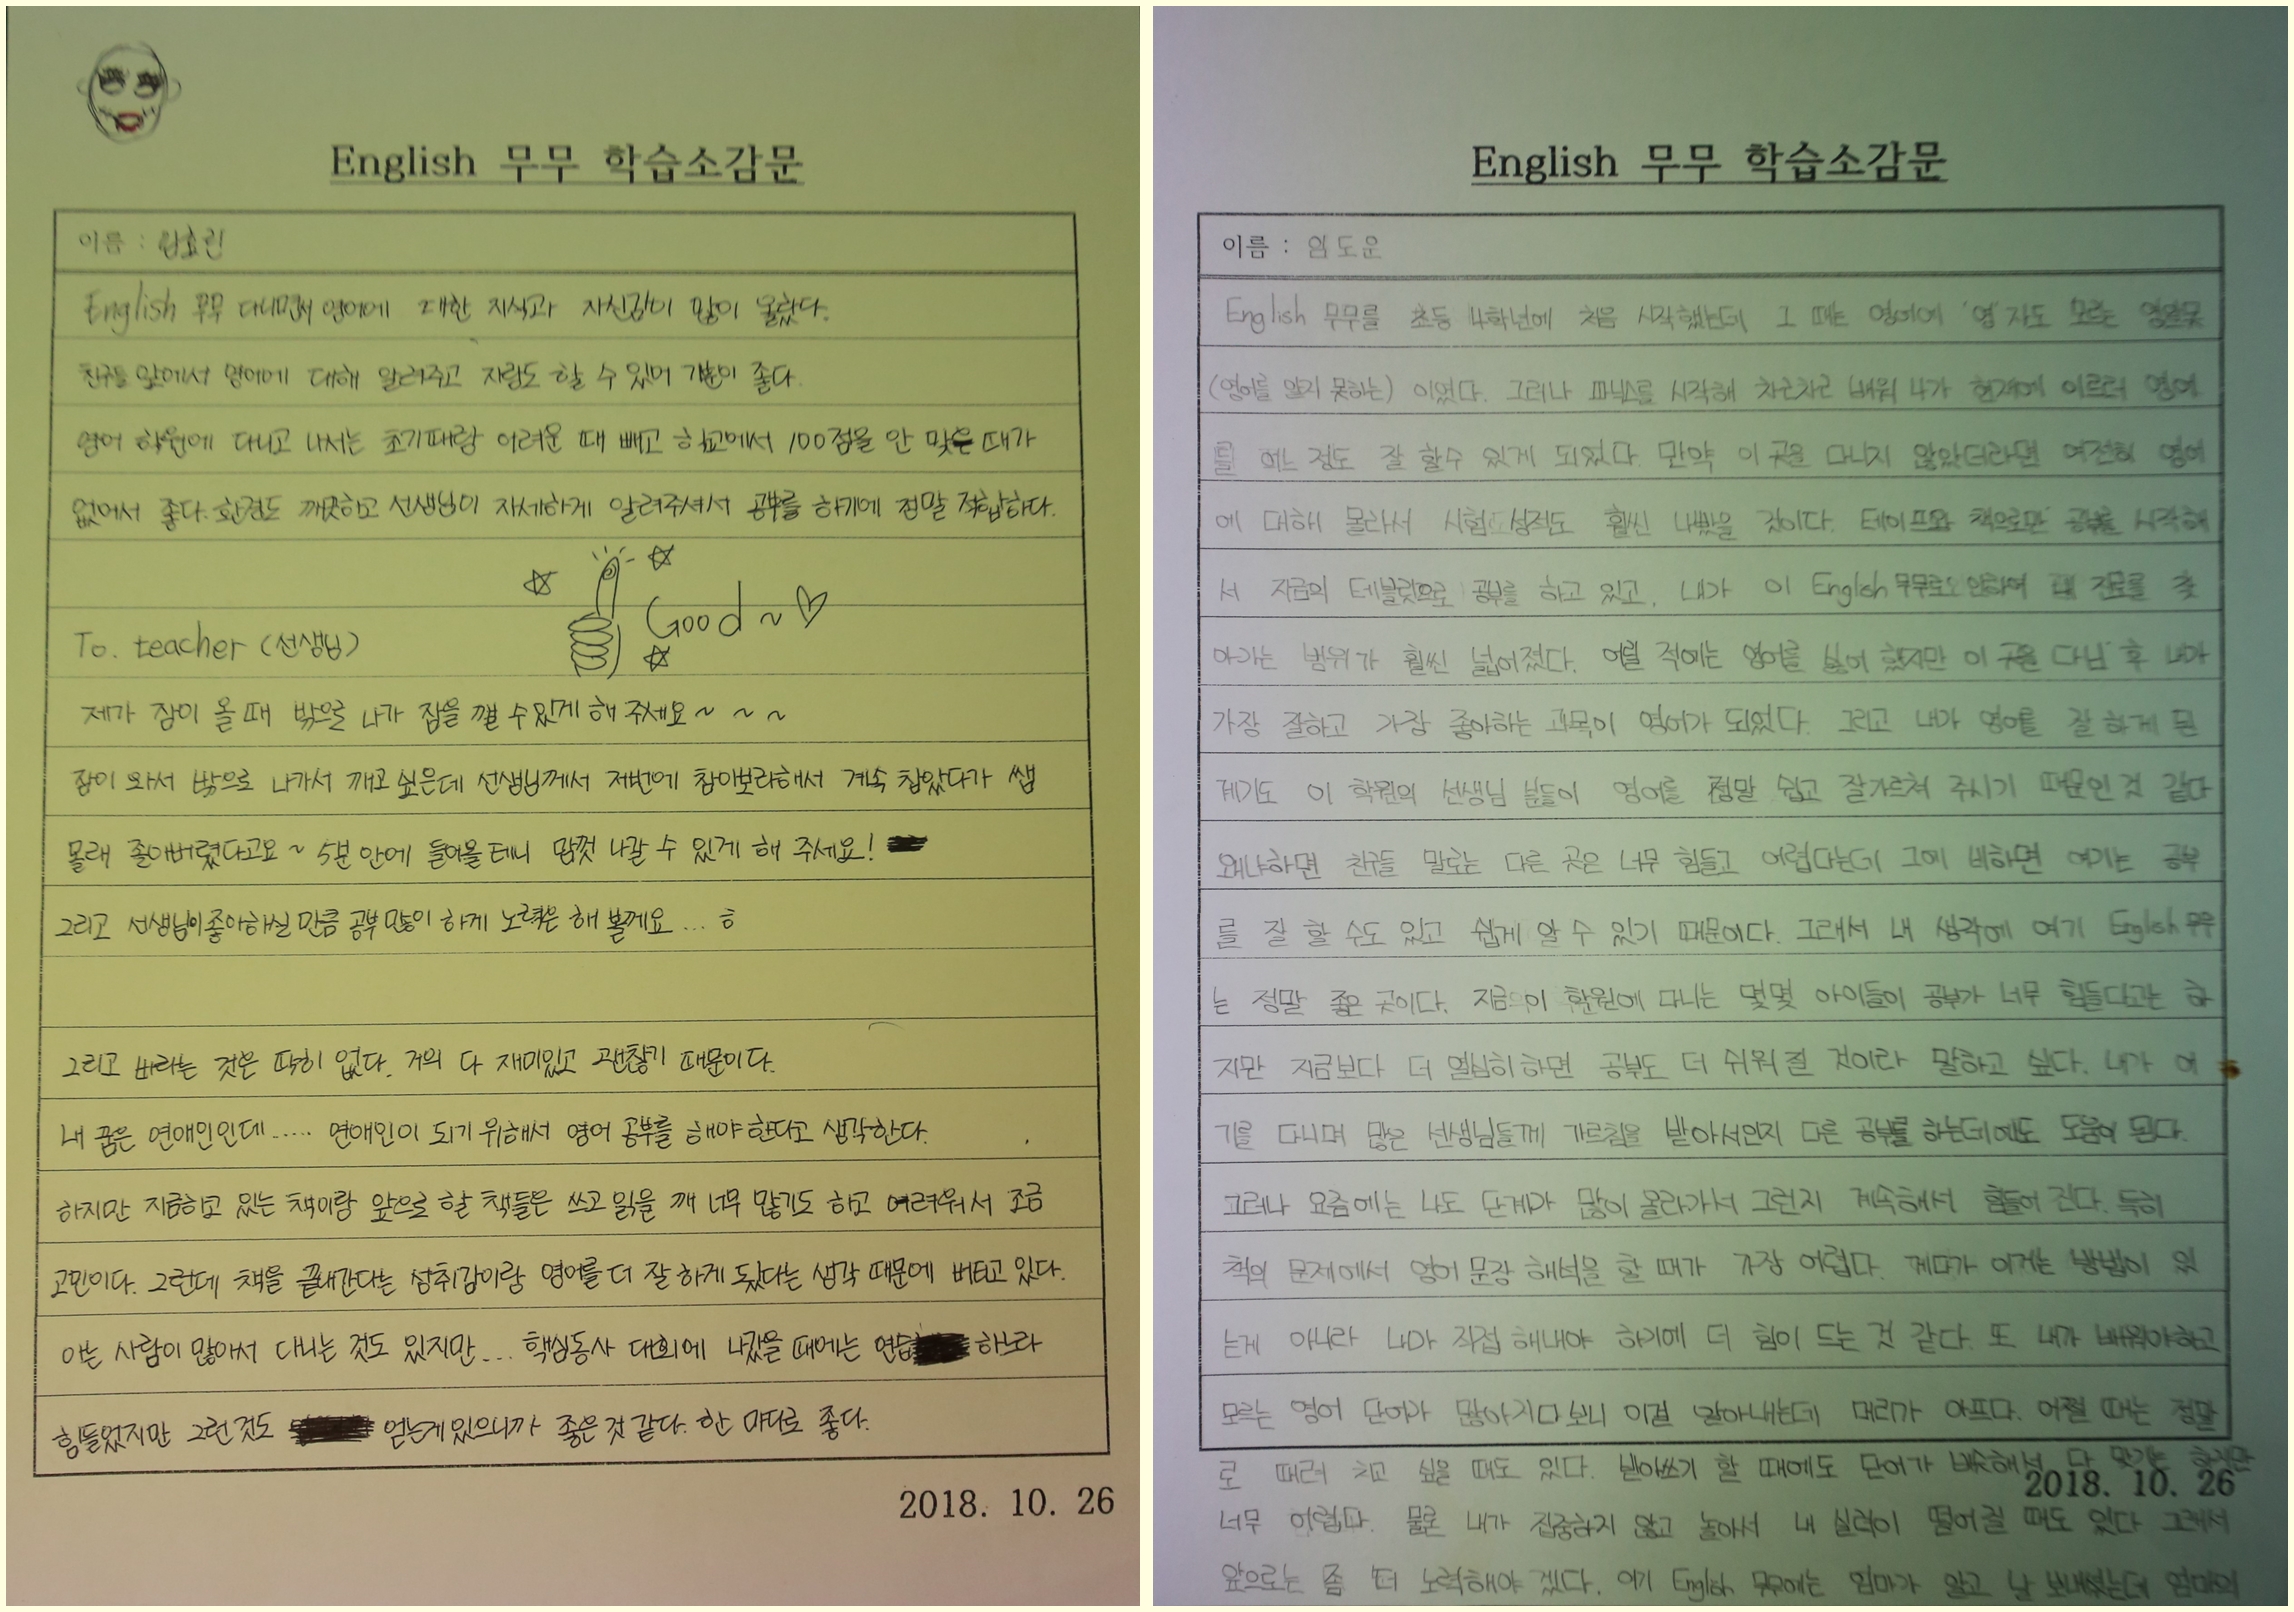 English 무무 학습소감문
이름 : 임효린
English 무무 다니면서 영어에 대한 지식과 자신감이 많이 올랐다.
친구들 앞에서 영어에 대해 알려주고 자랑도 할 수 있어 기분이 좋다.
영어 학원에 다니고 나서는 초기때랑 어려운 때 빼고 학교에서 100점을 안 맞은 때가
없어서 좋다. 환경도 깨끗하고 선생님이 자세하게 알려주셔서 공부를 하기에 정말 적합하다.
Good ~ ♡
To. teacher (선생님)
제가 잠이 올 때 밖으로 나가 잠을 깰 수 있게 해 주세요 ~ ~ ~
잠이 와서 밖으로 나가서 깨고 싶은데 선생님께서 저번에 참아보라해서 계속 참았다가 쌤
몰래 졸아버렸다고요 ~ 5분 안에 들어올 테니 맘껏 나갈 수 있게 해 주세요!
그리고 선생님이 좋아하실 만큼 공부 많이 하게 노력은 해 볼께요 ... ㅎ
그리고 바라는 것은 딱히 없다. 거의 다 재미있고 괜찮기 때문이다.
내 꿈은 연애인인데 ..... 연애인이 되기 위해서 영어 공부를 해야 한다고 생각한다.
하지만 지금하고 있는 책이랑 앞으로 할 책들은 쓰고 읽을 께 너무 많기도 하고 어려워서 조금
고민이다. 그런데 책을 끝내간다는 성취감이랑 영어를 더 잘 하게 됐다는 생각 때문에 버티고 있다.
아는 사람이 많아서 다니는 것도 있지만 ... 핵심동사 대회에 나갔을 때에는 연습 하느라
힘들었지만 그런것도 얻는게 있으니까 좋은 것 같다. 한 마디로 좋다.
2018. 10. 26
English 무무 학습소감문
이름 : 임도운
English 무무를 초등 4학년에 처음 시작했는데 그 때는 영어에 '영'자도 모르는 영알못
(영어를 알지 못하는) 이었다. 그러나 파닉스를 시작해 차근차근 배워 나가 현재에 이르러 영어
를 어느 정도 잘 할수 있게 되었다. 만약 이 곳을 다니지 않았더라면 여전히 영어
에 대해 몰라서 시험 성적도 훨씬 나빴을 것이다. 테이프와 책으로만 공부를 시작해
서 지금의 테블릿으로 공부를 하고 있고, 내가 이 English 무무로 인하여 내 진로를 찾
아가는 범위가 훨씬 넓어졌다. 어릴 적에는 영어를 싫어 했지만 이 곳을 다닌 후 나마
가장 잘하고 가장 좋아하는 과목이 영어가 되었다. 그리고 내가 영어를 잘 하게 된
계기도 이 학원의 선생님 분들이 영어를 정말 쉽고 잘가르쳐 주시기 때문인 것 같다
왜냐하면 친구들 말로는 다른 곳은 너무 힘들고 어렵다는데 그에 비하면 여기는 공부
를 잘 할 수도 있고 쉽게 알 수 있기 때문이다. 그래서 내 생각에 여기 English 무무
는 정말 좋은 곳이다. 지금 이 학원에 다니는 몇몇 아이들이 공부가 너무 힘들다고는 하
지만 지금보다 더 열심히 하면 공부도 더 쉬워 질 것이라 말하고 싶다. 내가 여
기를 다니며 많은 선생님들께 가르침을 받아서인지 다른 공부를 하는데에도 도움이 된다.
그러나 요즘에는 나도 단계가 많이 올라가서 그런지 계속해서 힘들어 진다. 특히
책의 문제에서 영어 문장 해석을 할 때가 가장 어렵다. 게다가 이게는 방법이 있
는게 아니라 나마 직접 해내야 하기에 더 힘이 드는 것 같다. 또 내가 배워야하고
모르는 영어 단어가 많아지다 보니 이걸 알아내는데 머리가 아프다. 어쩔 때는 정말
로 때려 치고 싶을 때도 있다. 받아쓰기 할 때에도 단어가 비슷해서 다 맞기는 하지만
2018. 10. 26
너무 어렵다. 물론 내가 집중하지 않고 놀아서 내 실력이 떨어질 때도 있다 그래서
앞으로는 좀 더 노력해야 겠다. 여기 English 무무에는 엄마가 알고 날 보내셨는데 엄마의